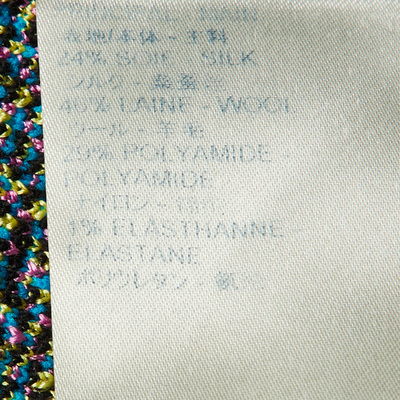 PRINCIPAL - MAIN
表地/本体 - 主料
24% SOIE - SILK
シルク - 桑蚕丝
46% LAINE - WOOL
ウール - 羊毛
29% POLYAMIDE -
POLYAMIDE
ナイロン -
1% ELASTHANNE -
ELASTANE
ポリウレタン -